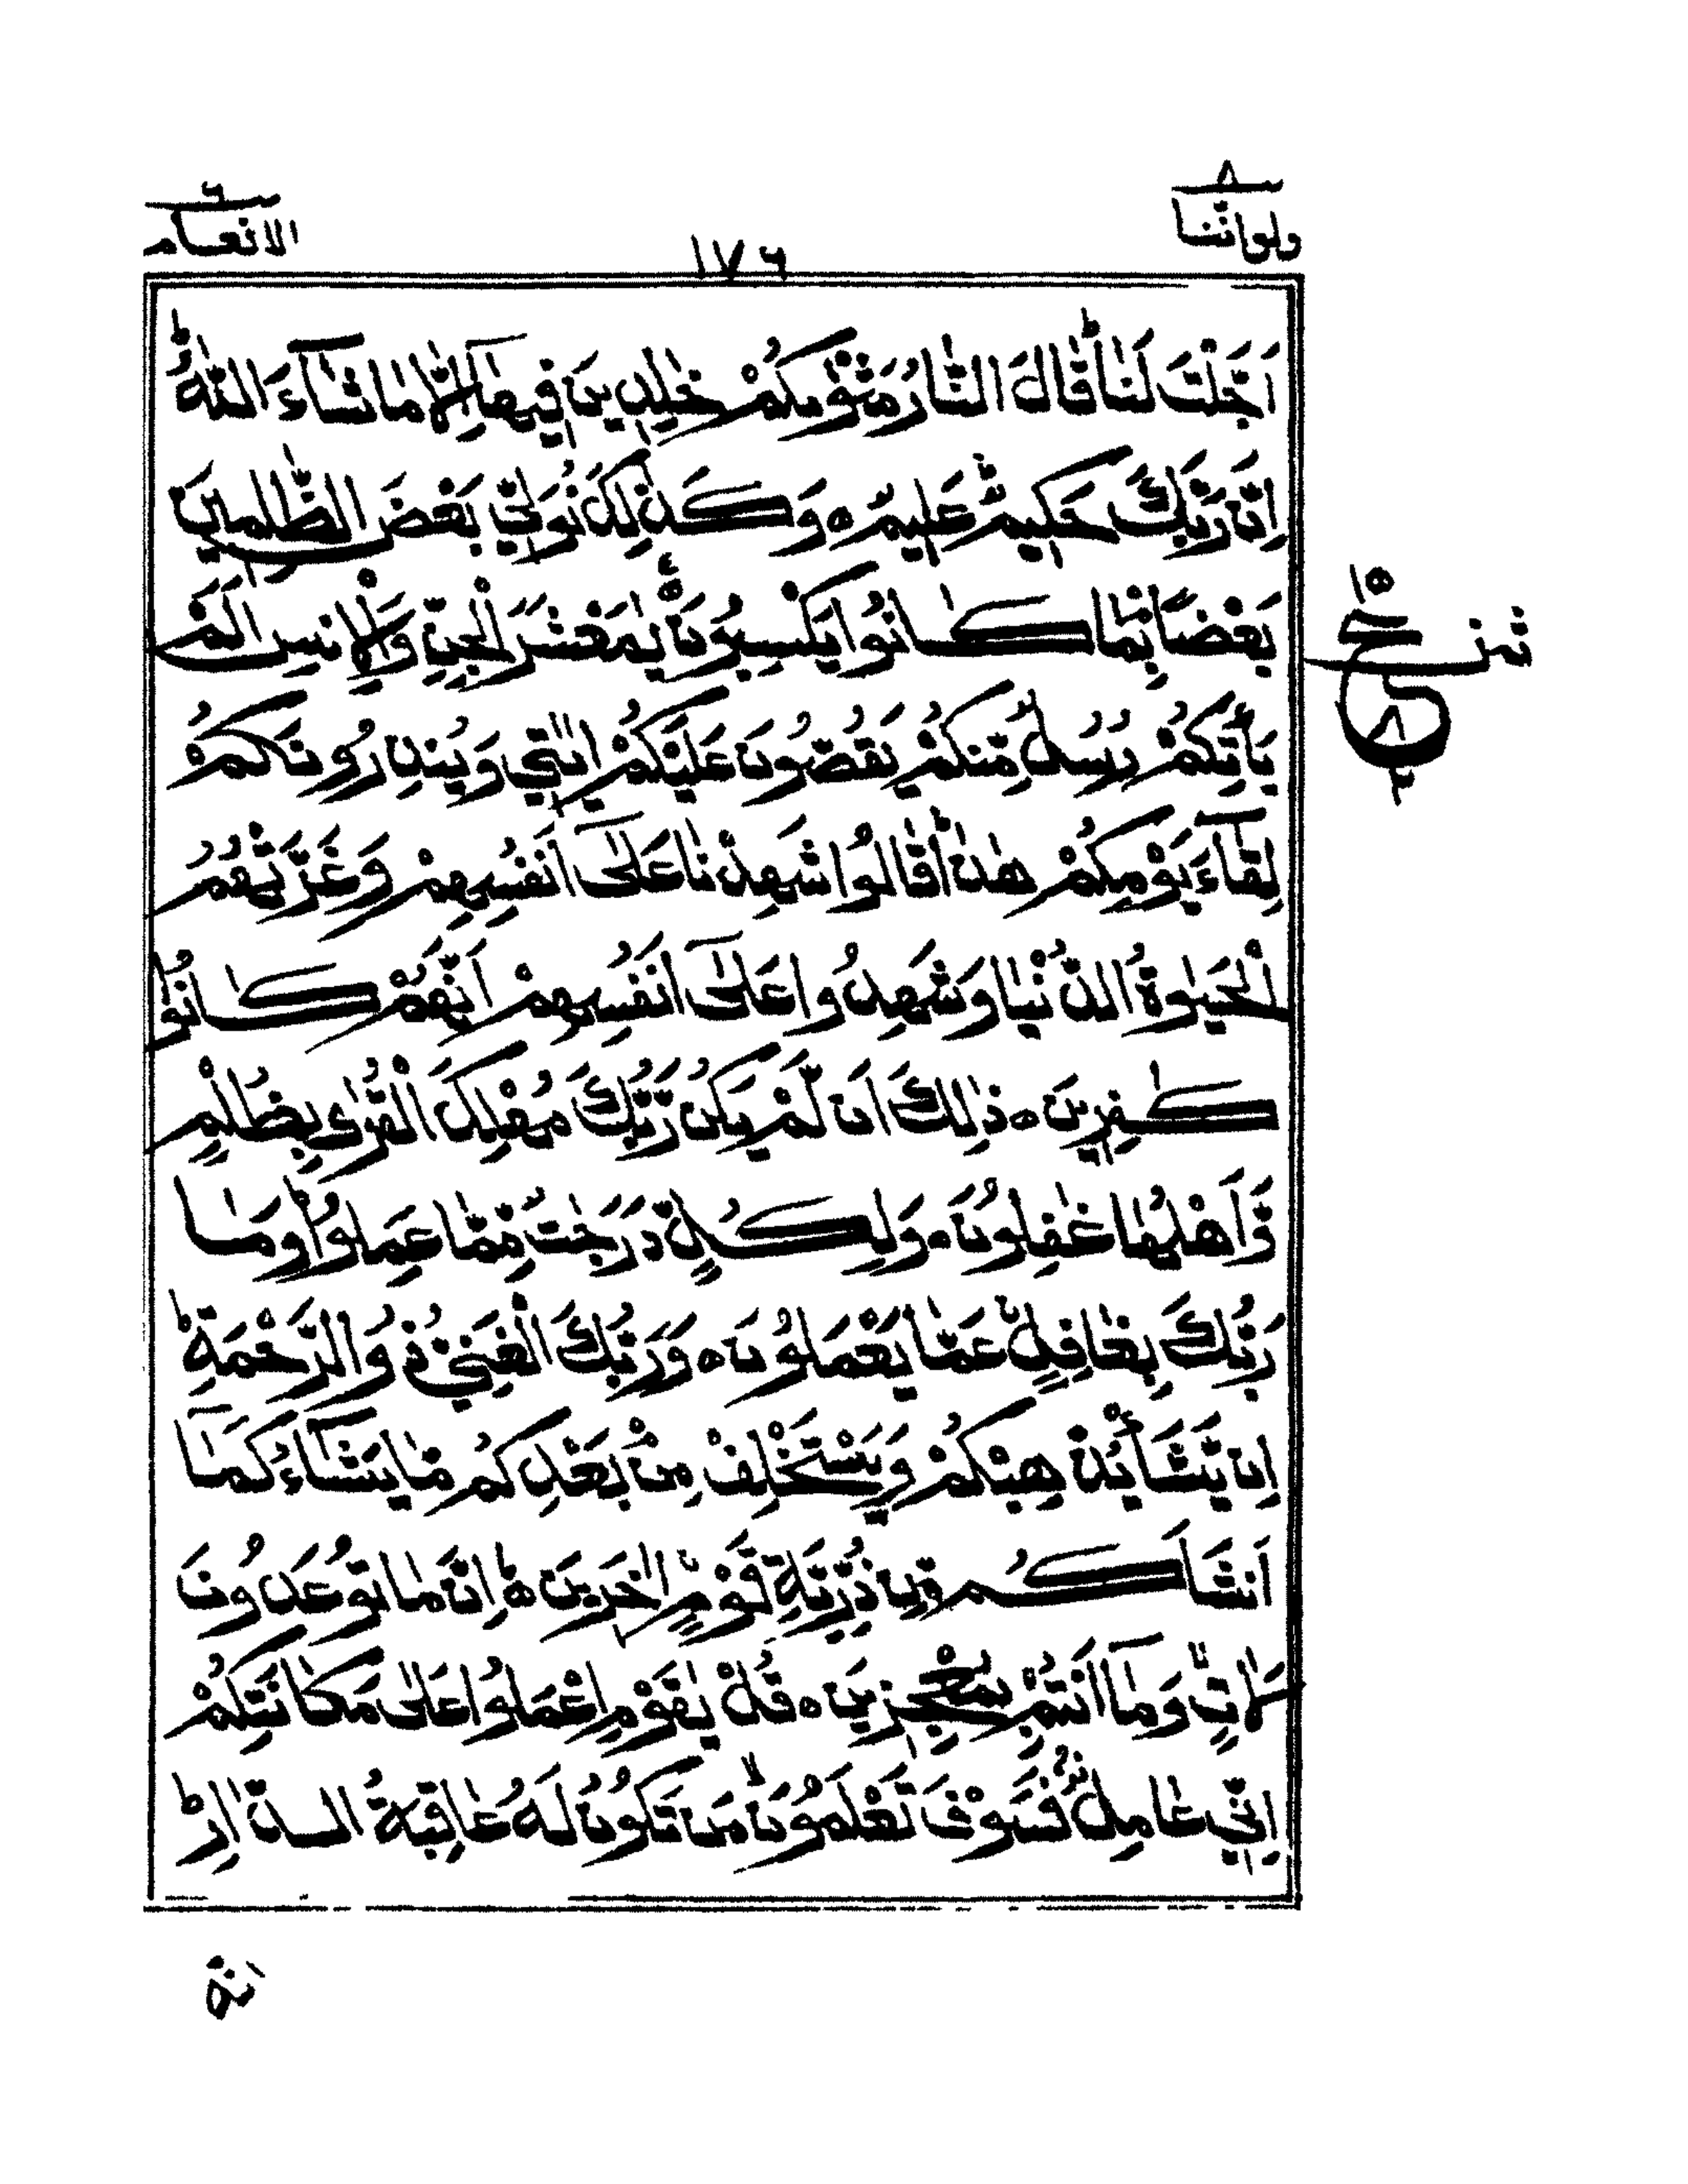 ولواننا ٨
١٧٦
الانعام ٦
اَجَّلْتَ لَنَا ؕ قَالَ النَّارُ مَثْوٰىكُمْ خٰلِدِيْنَ فِيْهَاۤ اِلَّا مَا شَآءَ اللّٰهُ ؕ
اِنَّ رَبَّكَ حَكِيْمٌ عَلِيْمٌ ه وَ كَذٰلِكَ نُوَلِّيْ بَعْضَ الظّٰلِمِيْنَ
بَعْضًۢا بِمَا كَانُوْا يَكْسِبُوْنَ ع يٰمَعْشَرَ الْجِنِّ وَالْاِنْسِ اَلَمْ
يَأْتِكُمْ رُسُلٌ مِّنْكُمْ يَقُصُّوْنَ عَلَيْكُمْ اٰيٰتِيْ وَيُنْذِرُوْنَكُمْ
لِقَآءَ يَوْمِكُمْ هٰذَا ؕ قَالُوْا شَهِدْنَا عَلٰۤى اَنْفُسِهِمْ وَغَرَّتْهُمُ
الْحَيٰوةُ الدُّنْيَا وَشَهِدُوْا عَلٰۤى اَنْفُسِهِمْ اَنَّهُمْ كَانُوْا
كٰفِرِيْنَ ه ذٰلِكَ اَنْ لَّمْ يَكُنْ رَّبُّكَ مُهْلِكَ الْقُرٰى بِظُلْمٍ
وَّاَهْلُهَا غٰفِلُوْنَ ه وَلِكُلٍّ دَرَجٰتٌ مِّمَّا عَمِلُوْا ؕ وَمَا
رَبُّكَ بِغَافِلٍ عَمَّا يَعْمَلُوْنَ ه وَرَبُّكَ الْغَنِيُّ ذُو الرَّحْمَةِ ؕ
اِنْ يَّشَأْ يُذْهِبْكُمْ وَيَسْتَخْلِفْ مِنْۢ بَعْدِكُمْ مَّا يَشَآءُ كَمَاۤ
اَنْشَاَكُمْ مِّنْ ذُرِّيَّةِ قَوْمٍ اٰخَرِيْنَ ه ؕ اِنَّ مَا تُوْعَدُوْنَ
لَاٰتٍ وَّمَاۤ اَنْتُمْ بِمُعْجِزِيْنَ ه قُلْ يٰقَوْمِ اعْمَلُوْا عَلٰى مَكَانَتِكُمْ
اِنِّيْ عَامِلٌ فَسَوْفَ تَعْلَمُوْنَ مَنْ تَكُوْنُ لَهٗ عَاقِبَةُ الدَّارِ ؕ
١٥
ع
٨
٢
انه